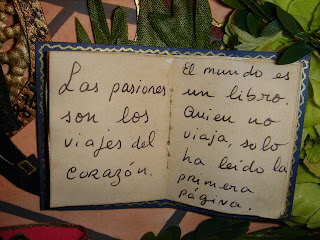 Las pasiones
son los
viajes del
corazón.
El mundo es
un libro.
Quien no
viaja, solo
ha leído la
primera
página.